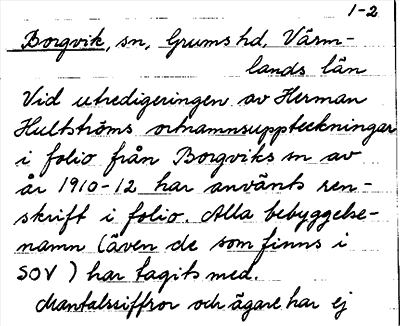 1-2
Borgvik, sn, Grums hd, Värm-
lands län
Vid utredigeringen av Herman
Hultströms ortnamnsuppteckningar
i folio från Borgviks sn av
år 1910-12 har använts ren-
skrift i folio. Alla bebyggelse-
namn (även de som finns i
SOV) har tagits med.
Mantalssiffror och ägare har ej